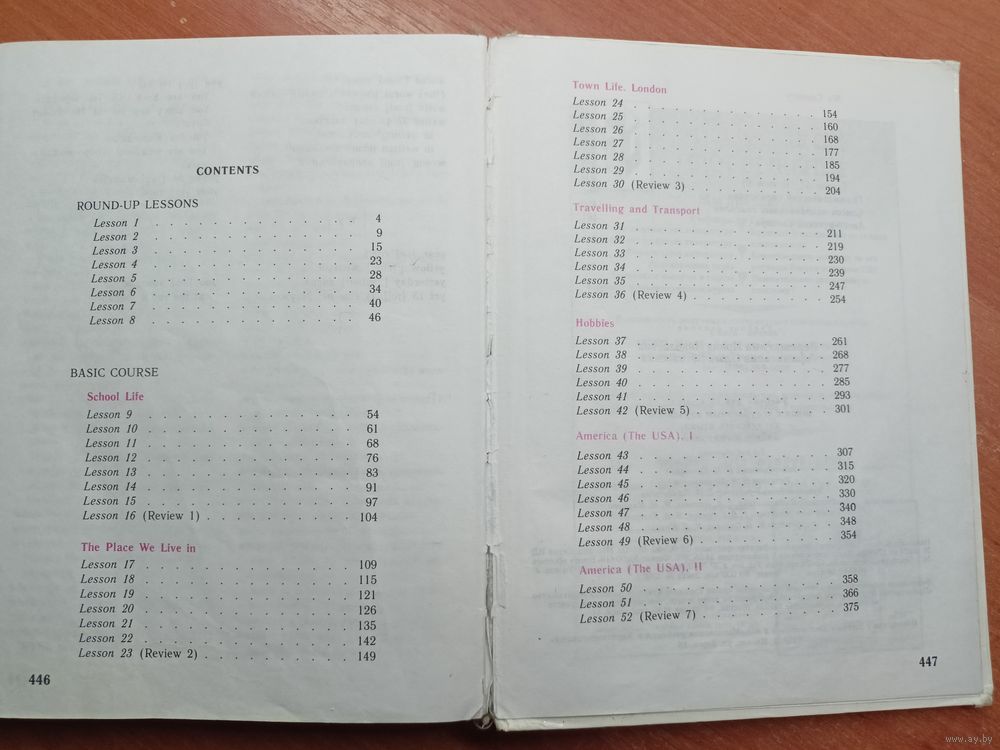 CONTENTS
ROUND-UP LESSONS
Lesson 1 . . . . . . . . . . . 4
Lesson 2 . . . . . . . . . . . 9
Lesson 3 . . . . . . . . . . . 15
Lesson 4 . . . . . . . . . . . 23
Lesson 5 . . . . . . . . . . . 28
Lesson 6 . . . . . . . . . . . 34
Lesson 7 . . . . . . . . . . . 40
Lesson 8 . . . . . . . . . . . 46
BASIC COURSE
School Life
Lesson 9 . . . . . . . . . . . 54
Lesson 10 . . . . . . . . . . . 61
Lesson 11 . . . . . . . . . . . 68
Lesson 12 . . . . . . . . . . . 76
Lesson 13 . . . . . . . . . . . 83
Lesson 14 . . . . . . . . . . . 91
Lesson 15 . . . . . . . . . . . 97
Lesson 16 (Review 1) . . . . . . . . 104
The Place We Live in
Lesson 17 . . . . . . . . . . . 109
Lesson 18 . . . . . . . . . . . 115
Lesson 19 . . . . . . . . . . . 121
Lesson 20 . . . . . . . . . . . 126
Lesson 21 . . . . . . . . . . . 135
Lesson 22 . . . . . . . . . . . 142
Lesson 23 (Review 2) . . . . . . . . 149
446
Town Life. London
Lesson 24 . . . . . . . . . . . 154
Lesson 25 . . . . . . . . . . . 160
Lesson 26 . . . . . . . . . . . 168
Lesson 27 . . . . . . . . . . . 177
Lesson 28 . . . . . . . . . . . 185
Lesson 29 . . . . . . . . . . . 194
Lesson 30 (Review 3) . . . . . . . . 204
Travelling and Transport
Lesson 31 . . . . . . . . . . . 211
Lesson 32 . . . . . . . . . . . 219
Lesson 33 . . . . . . . . . . . 230
Lesson 34 . . . . . . . . . . . 239
Lesson 35 . . . . . . . . . . . 247
Lesson 36 (Review 4) . . . . . . . . 254
Hobbies
Lesson 37 . . . . . . . . . . . 261
Lesson 38 . . . . . . . . . . . 268
Lesson 39 . . . . . . . . . . . 277
Lesson 40 . . . . . . . . . . . 285
Lesson 41 . . . . . . . . . . . 293
Lesson 42 (Review 5) . . . . . . . . 301
America (The USA), I
Lesson 43 . . . . . . . . . . . 307
Lesson 44 . . . . . . . . . . . 315
Lesson 45 . . . . . . . . . . . 320
Lesson 46 . . . . . . . . . . . 330
Lesson 47 . . . . . . . . . . . 340
Lesson 48 . . . . . . . . . . . 348
Lesson 49 (Review 6) . . . . . . . . 354
America (The USA), II
Lesson 50 . . . . . . . . . . . 358
Lesson 51 . . . . . . . . . . . 366
Lesson 52 (Review 7) . . . . . . . . 375
447
www.ay.by